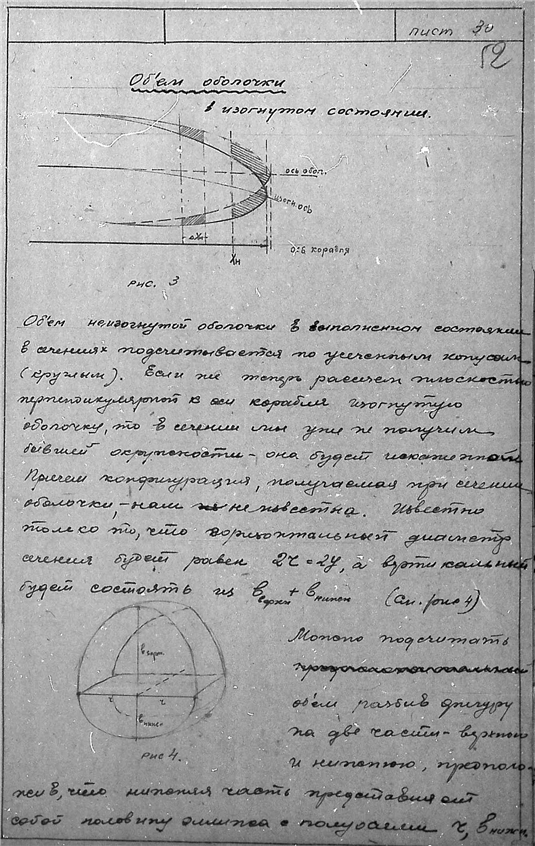 лист 30
52
Об'ем оболочки
в изогнутом состоянии.
ось обол.
изогн. ось
ось корабля
ΔXн
Xн
рис. 3
Об'ем неизогнутой оболочки в выполненном состоянии
в сечениях подсчитывается по усеченным конусам
(круглым). Если же теперь рассечем плоскостью
перпендикулярной к оси корабля изогнутую
оболочку, то в сечении мы уже не получим
бывшей окружности - она будет искаженной
Причем конфигурация, получаемая при сечении
оболочки, - нам не известна. Известно
только то, что горизонтальный диаметр
сечения будет равен 2r = 2y, а вертикальный
будет состоять из bверхн + bнижн (см. рис 4)
bверхн.
r
r
bнижн
рис 4.
Можно подсчитать
об'ем разбив фигуру
на две части - верхнюю
и нижнюю, предполо-
жив, что нижняя часть представляет
собой половину эллипса с полуосями r, bнижн